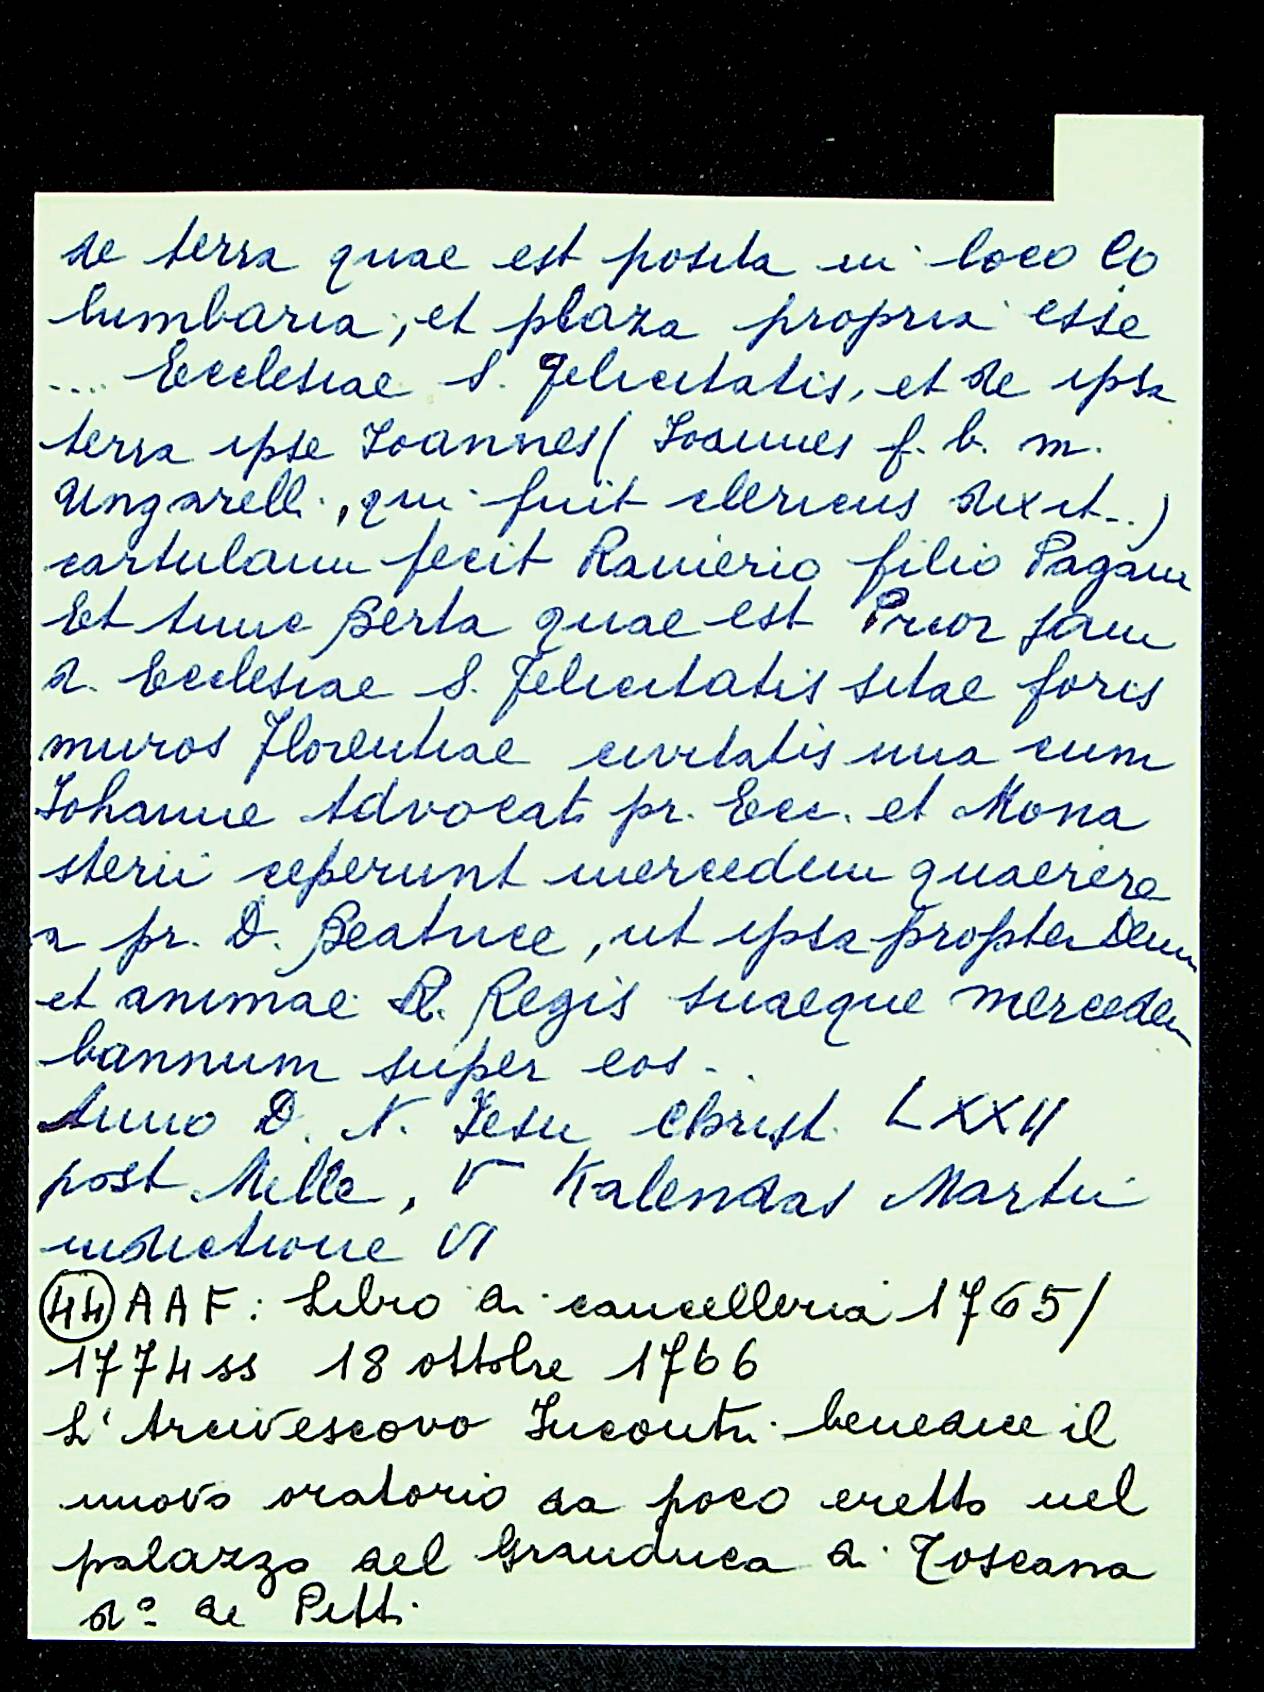 de terra quae est posita in loco Co
lumbaria, et plaza propria esse
.... Ecclesiae S. Felicitatis, et de ipsa
terra ipse Ioannes ( Ioannes f. b. m.
Ungarelli, qui fuit clericus dixit..)
cartulam fecit Ranierio filio Pagani
Et tunc Berta quae est Prior jam
d. Ecclesiae S. Felicitatis sitae foris
muros Florentiae civitatis una cum
Iohanne Advocati pr. Ecc. et Mona
sterii ceperunt mercedem quaerere
a pr. D. Beatrice, ut ipsa propter Deum
et animae R. Regis suaeque mercedem
bannum super eos..
Anno D. N. Iesu Christi LXXII
post Mille, V Kalendas Martii
indictione VI
(44) AAF: Libro di cancelleria 1765/
1774 ss 18 ottobre 1766
L'Arcivescovo Incontri benedice il
nuovo oratorio da poco eretto nel
palazzo del Granduca di Toscana
d° de Pitti